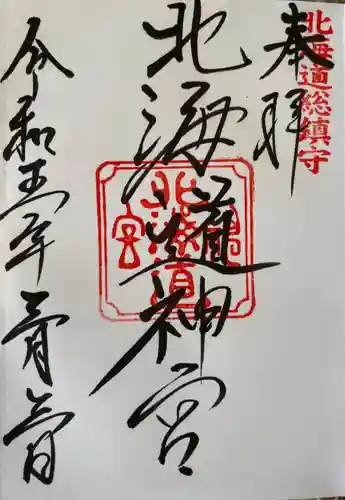 北海道総鎮守
奉拝
北海道神宮
北海道神宮
令和五年